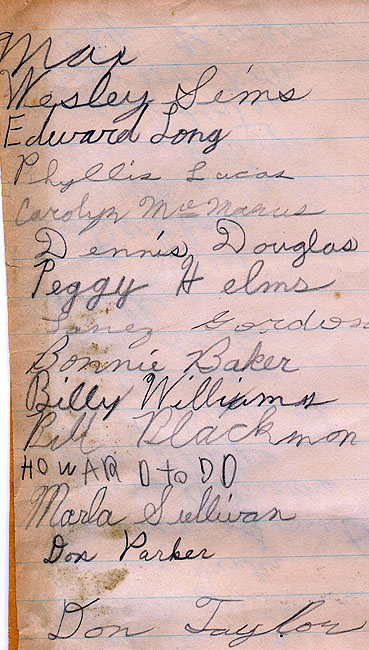 Max
Wesley Sims
Edward Long
Phyllis Lucas
Carolyn McManus
Dennis Douglas
Peggy Helms
Janez Gordon
Bonnie Baker
Billy Williams
Bill Blackmon
HOWARD toDD
Marla Sullivan
Don Parker
Don Taylor